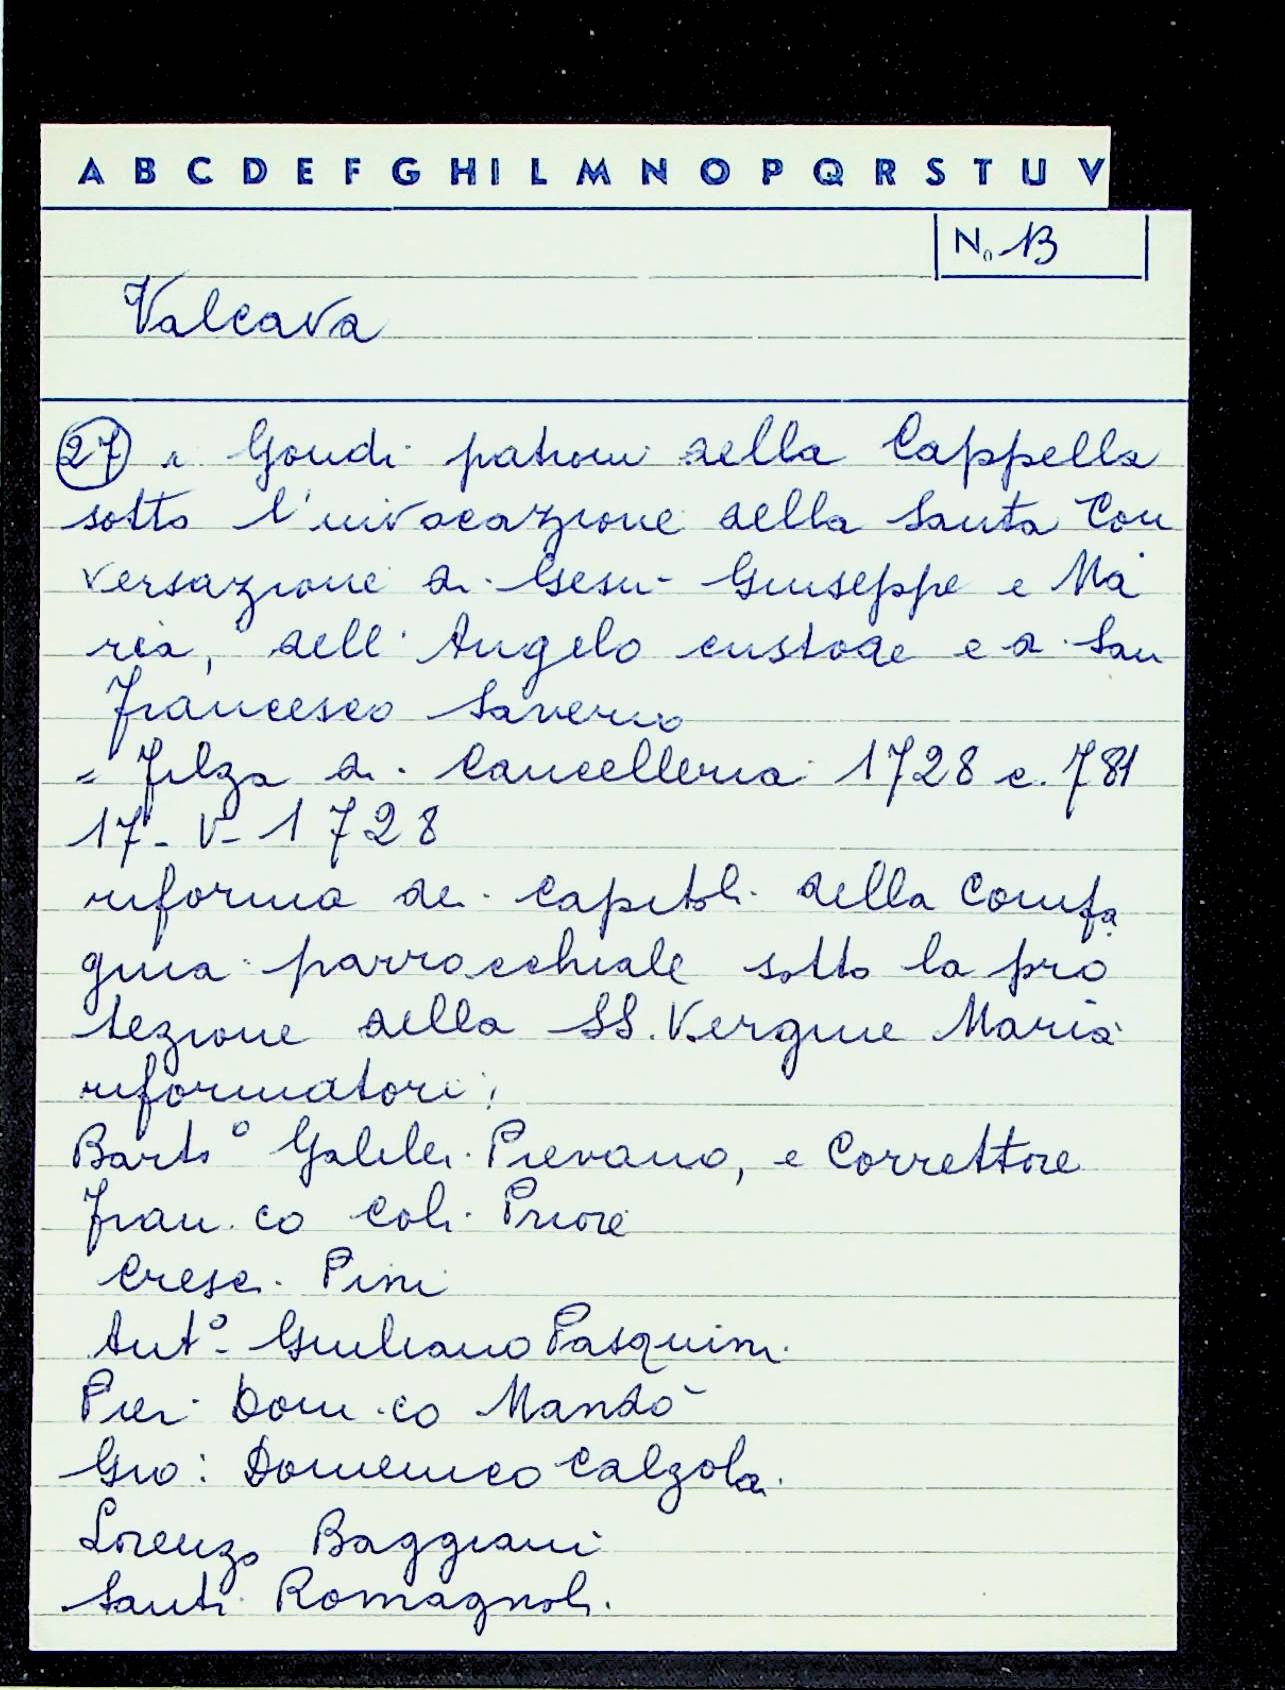 A B C D E F G H I L M N O P Q R S T U V
N. 13
Valcava
27 i Gondi patroni della Cappella
sotto l'invocazione della Santa Con
versazione di Gesù Giuseppe e Ma
ria, dell'Angelo custode e di San
Francesco Saverio
= Filza di Cancelleria 1728 c. 781
17-V-1728
riforma dei capitoli della Compa
gnia parrocchiale sotto la pro
tezione della SS. Vergine Maria
riformatori:
Barto° Galilei Pievano, e Correttore
Fran.co Coli Priore
Cresci Pini
Ant° Giuliano Pasquini
Pier Dom.co Mandò
Gio: Domenico Calzolai
Lorenzo Baggiani
Santi Romagnoli